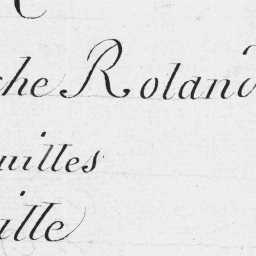 che Roland
uilles
ille